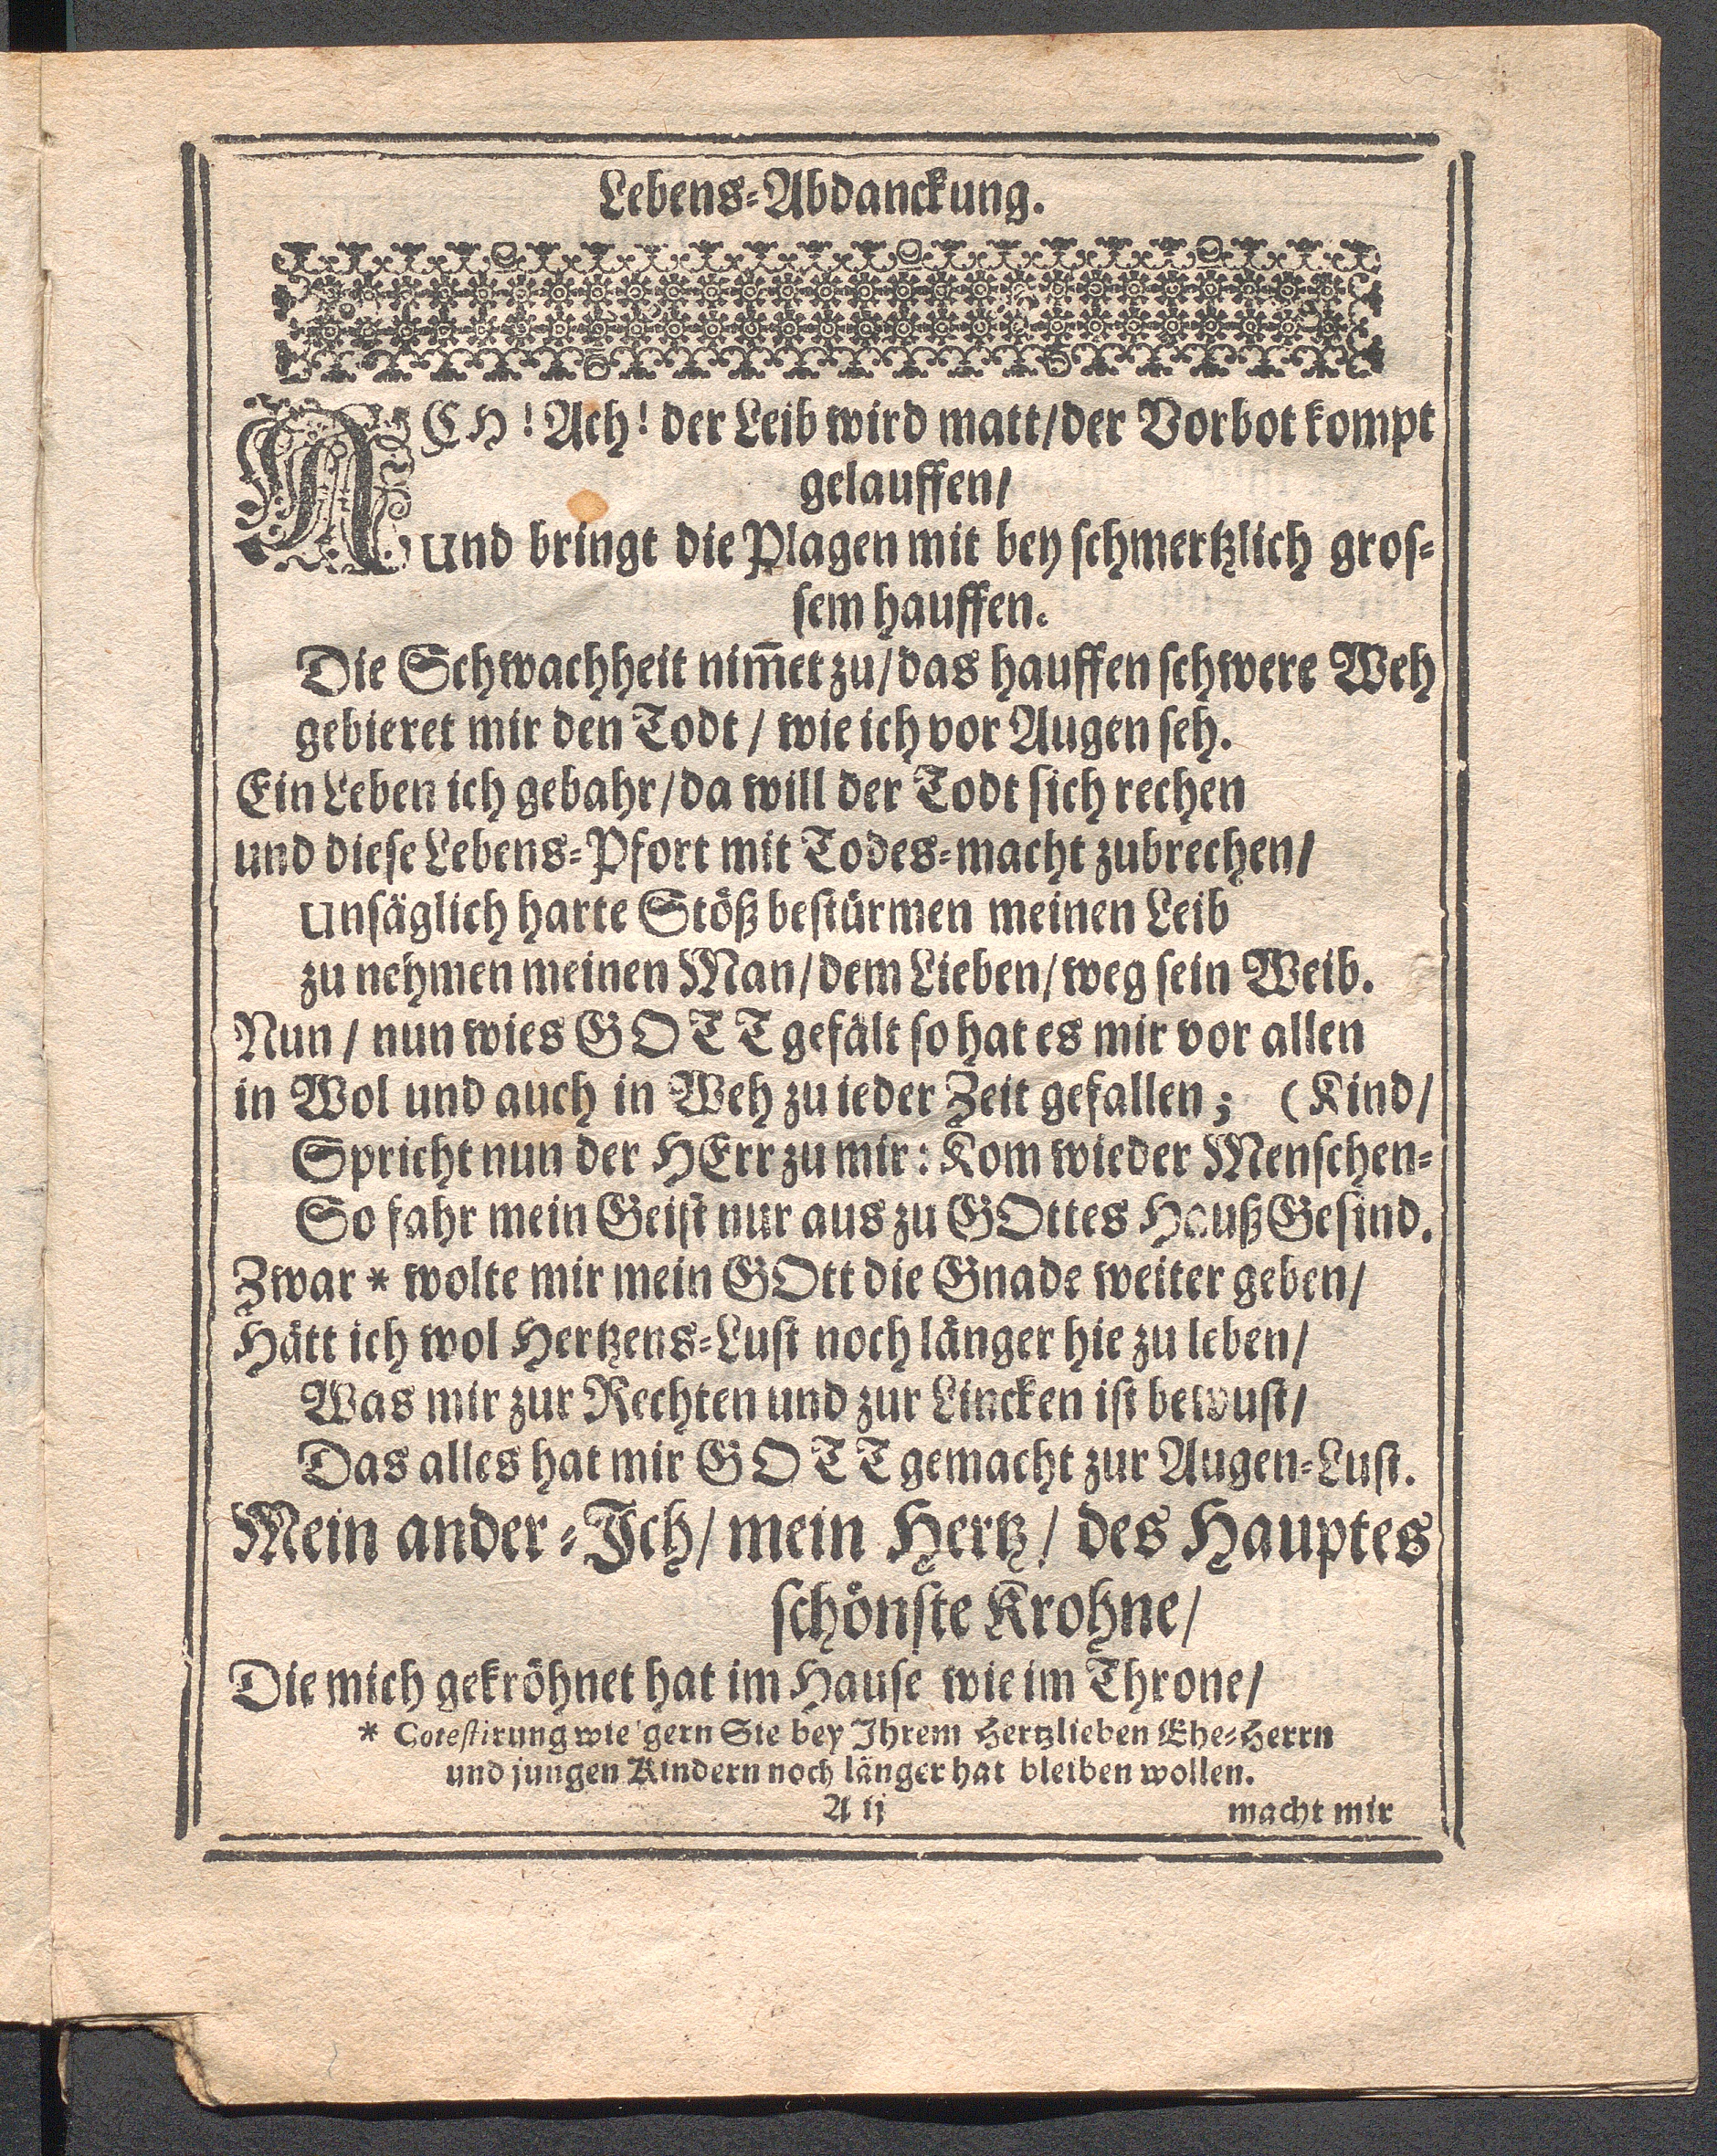 Lebens-Abdanckung.
ACH! Ach! der Leib wird matt/der Vorbot kompt
gelauffen/
und bringt die Plagen mit bey schmertzlich gros-
sem hauffen.
Die Schwachheit nim̃et zu/das hauffen schwere Weh
gebieret mir den Todt/ wie ich vor Augen seh.
Ein Leben ich gebahr/da will der Todt sich rechen
und diese Lebens-Pfort mit Todes-macht zubrechen/
Unsäglich harte Stöß bestürmen meinen Leib
zu nehmen meinen Man/dem Lieben/weg sein Weib.
Nun/ nun wies GOTT gefält so hat es mir vor allen
in Wol und auch in Weh zu ieder Zeit gefallen; (Kind/
Spricht nun der HErr zu mir: Kom wieder Menschen-
So fahr mein Geist nur aus zu GOttes Hauß Gesind.
Zwar * wolte mir mein GOtt die Gnade weiter geben/
Hätt ich wol Hertzens-Lust noch länger hie zu leben/
Was mir zur Rechten und zur Lincken ist bewust/
Das alles hat mir GOTT gemacht zur Augen-Lust.
Mein ander-Ich/ mein Hertz/ des Hauptes
schönste Krohne/
Die mich gekröhnet hat im Hause wie im Throne/
* Cotestirung wie gern Sie bey Ihrem Hertzlieben Ehe-Herrn
und jungen Kindern noch länger hat bleiben wollen.
A ij macht mir